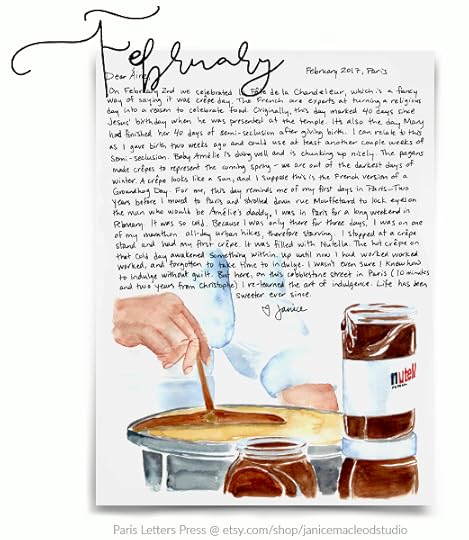 February
Dear Áine,
February 2017, Paris
On February 2nd we celebrated La Fête de la Chandeleur, which is a fancy
way of saying it was crêpe day. The French are experts at turning a religious
day into a reason to celebrate food. Originally, this day marked 40 days since
Jesus' birthday when he was presented at the temple. It's also the day Mary
had finished her 40 days of semi-seclusion after giving birth. I can relate to this
as I gave birth two weeks ago and could use at least another couple weeks of
semi-seclusion. Baby Amélie is doing well and is chunking up nicely. The pagans
made crêpes to represent the coming spring - we are out of the darkest days of
winter. A crêpe looks like a sun, and I suppose this is the French version of a
Groundhog Day. For me, this day reminds me of my first days in Paris—Two
years before I moved to Paris and strolled down rue Mouffetard to lock eyes on
the man who would be Amélie's daddy, I was in Paris for a long weekend in
February. It was so cold. Because I was only there for three days, I was on one
of my marathon all-day urban hikes, therefore starving. I stopped at a crêpe
stand and had my first crêpe. It was filled with Nutella. The hot crêpe on
that cold day awakened something within. Up until now I had worked worked
worked, and forgotten to take time to indulge. I wasn't even sure I knew how
to indulge without guilt. But here, on this cobblestone street in Paris (10 minutes
and two years from Christophe) I re-learned the art of indulgence. Life has been
sweeter ever since.
♡ Janice
nutella
Paris Letters Press @ etsy.com/shop/janicemacleodstudio